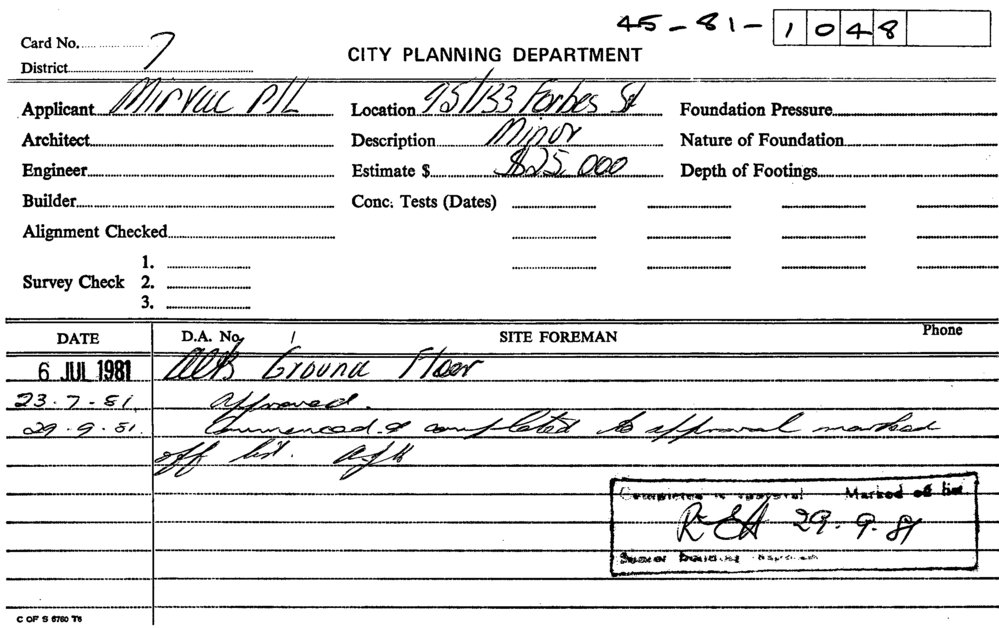 45-81-1048
Card No. 7
District
CITY PLANNING DEPARTMENT
Applicant Mirvac P/L Location 95/133 Forbes St Foundation Pressure
Architect Description Minor Nature of Foundation
Engineer Estimate $ $25,000 Depth of Footings
Builder Conc. Tests (Dates)
Alignment Checked
1.
Survey Check 2.
3.
DATE D.A. No. SITE FOREMAN Phone
6 JUL 1981 Alts Ground Floor
23.7.81. approved.
29.9.81. Commenced & completed to approval marked
off list.
Completed to approval Marked off list
29.9.81
Senior Building
C OF S 6760 T6